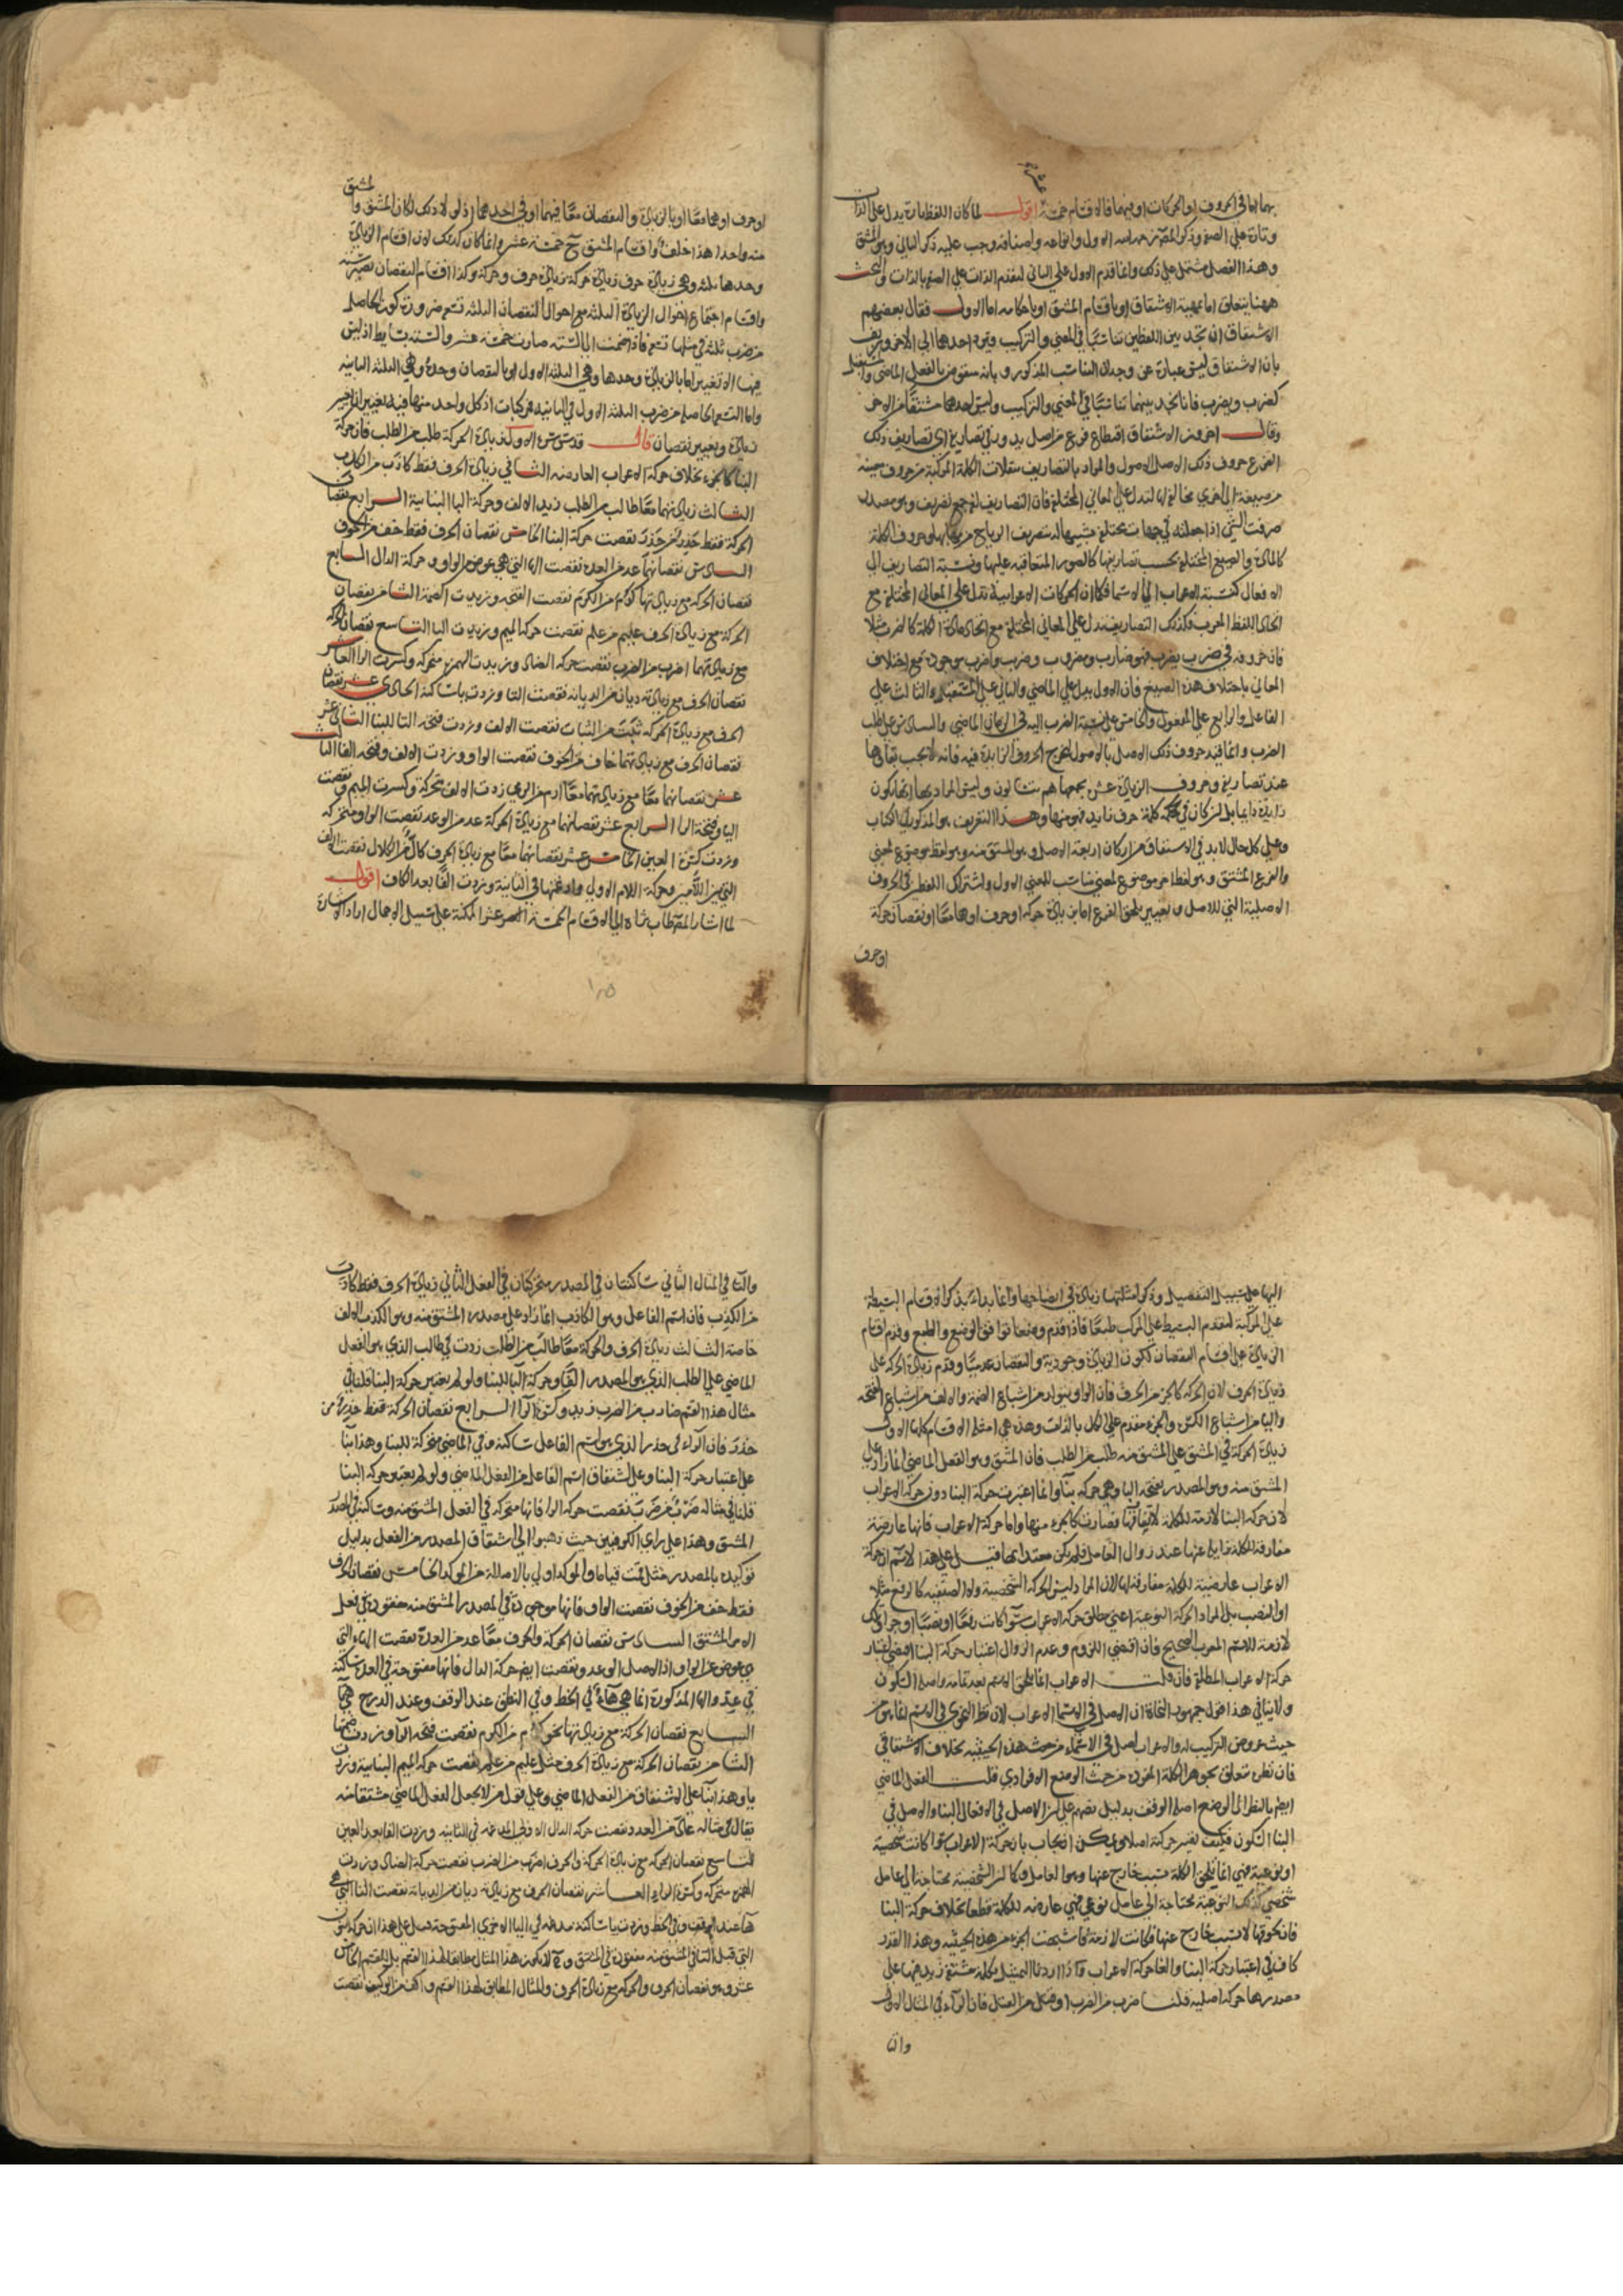 بهما اما في الحروف او الحركات او فيهما فالاقسام خمسة عشر اقول لما كان اللفظ تارة يدل على الذات
وتارة على الصفة وذكر المصنف الاول وانواعه واصنافه وجب عليه ذكر الثاني وهو المشتق
وهذا الفصل مشتمل على ذلك وانما قدم الاول على الثاني لتقدم الذات على الصفة بالذات والبحث
ههنا يتعلق اما بمهية الاشتقاق او باقسام المشتق او باحكامه اما الاول فقال بعضهم
الاشتقاق ان تجد بين اللفظين تناسبا في المعنى والتركيب وترد احدهما الى الاخر وزيف
بان الاشتقاق ليس عبارة عن وجدان التناسب المذكور وبانه منقوض بالفعل الماضي والمستقبل
كضرب ويضرب فانا نجد بينهما تناسبا في المعنى والتركيب وليس احدهما مشتقا من الاخر
وقال اخرون الاشتقاق اقتطاع فرع من اصل يدور في تصاريف ذلك
الفرع حروف ذلك الاصل الاصول والمراد بالتصاريف تنقلات الكلمة المركبة من حروف معينة
من صيغة الى اخرى مخالفة لها لتدل على المعاني المختلفة فان التصاريف جمع تصريف وهو مصدر
صرفت الشي اذا جعلته في جهات مختلفة مشبها له بتصريف الرياح وحروف الكلمة
كالمادة والصيغ المختلفة بحسب تصاريفها كالصور المتعاقبة عليها ونسبة التصاريف الى
الافعال كنسبة الاعراب الى الاسما فكما ان الحركات الاعرابية تدل على المعاني المختلفة مع
اتحاد اللفظ المعرب فكذلك التصاريف تدل على المعاني المختلفة مع اتحاد مادة الكلمة كالضرب مثلا
فان حروفه في ضرب يضرب فهو ضارب ومضروب وضرب واضرب موجودة مع اختلاف
المعاني باختلاف هذه الصيغ فان الاول يدل على الماضي والثاني على المستقبل والثالث على
الفاعل والرابع على المفعول والخامس على نسبة الضرب اليه في الزمان الماضي والسادس على طلب
الضرب وانما قيد حروف ذلك الاصل بالاصول لتخرج الحروف الزايدة فيه فانه لا يجب بقاؤها
عند تصاريفه وحروف الزيادة عشر يجمعها هم يتسالون وليس المراد بها انها تكون
زايدة دايما بل ان كان في كلمة حرف زايد فهو منها وهذا التعريف هو المذكور في الكتاب
وعلى كل حال لابد في الاشتقاق من اركان اربعة الاصل وهو المشتق منه وهو لفظ موضوع لمعنى
والفرع المشتق وهو لفظ اخر موضوع لمعنى مناسب للمعنى الاول واشتراك اللفظين في الحروف
الاصلية التي للاصل وتغيير يلحق الفرع اما بزيادة حركة او حرف او هما معا او نقصان حركة
او حرف
للمشتق
او حرف او هما معا او بالزيادة والنقصان معا فيهما او في احدهما اذ لولا ذلك لكان المشتق وا
منه واحدا هذا خلف واقسام المشتق ح خمسة عشر وانما كان كذلك لان اقسام الزيادة
وحدها ثلثة وهي زيادة حرف زيادة حركة زيادة حرف وحركة وكذا اقسام النقصان تصير ستة
واقسام اجتماع احوال الزيادة الثلثة مع احوال النقصان الثلثة تسع ضرورة كون الحاصل
من ضرب ثلثة في مثلها تسع فاذا ضمت الى الستة صارت خمسة عشر والستة بسايط اذ ليس
فيها الا تغيير اما بالزيادة وحدها وهي الثلثة الاول او بالنقصان وحده وهي الثلثة الثانية
واما التسع الحاصلة من ضرب الثلثة الاول في الثانية فمركبات اذ كل واحد منها فيه تغييران تغيير
زيادة وتغيير نقصان قال قدس سره الاول زيادة الحركة طلب من الطلب فان حركة
البنا كالجزء بخلاف حركة الاعراب العارضة الثاني زيادة الحرف فقط كاذب من الكذب
الثالث زيادتهما معا طالب من الطلب زيد الالف وحركة البا البنائية الرابع نقصان
الحركة فقط حذر من حذر نقصت حركة البنا الخامس نقصان الحرف فقط خف من الخوف
السادس نقصانهما عد من العدة نقصت الها التي هي عوض الواو وحركة الدال السابع
نقصان الحركة مع زيادتها كرم من الكرم نقصت الفتحة وزيدت الضمة الثامن نقصان
الحركة مع زيادة الحرف عليم من علم نقصت حركة الميم وزيدت اليا التاسع نقصان الحركة
مع زيادتهما اضرب من الضرب نقصت حركة الضاد وزيدت الهمزة متحركة وكسرت الرا العاشر
نقصان الحرف مع زيادته ديان من الديانة نقصت التا وزدت يا ساكنة الحادي عشر نقصان
الحرف مع زيادة الحركة ثبت من الثبات نقصت الالف وزدت فتحة التا للبنا الثاني عشر
نقصان الحرف مع زيادتهما خاف من الخوف نقصت الواو وزدت الالف وفتحة الفا الثالث
عشر نقصانهما معا مع زيادتهما معا ارم من الرمي زدت الالف متحركة وكسرت الميم ونقصت
اليا وفتحة الرا الرابع عشر نقصانهما مع زيادة الحركة عد من الوعد نقصت الواو متحركة
وزدت كسرة العين الخامس عشر نقصانهما معا مع زيادة الحرف كال من الكلال نقصت الالف
التي بين اللامين وحركة اللام الاولى وادغمتها في الثانية وزدت الفا بعد الكاف اقول
لما اشار المص طاب ثراه الى الاقسام الخمسة عشر الممكنة على سبيل الاجمال اراد الاشارة
اليها على سبيل التفصيل وذكر امثلتها زيادة في ايضاحها وانما بدا بذكر الاقسام البسيطة
على المركبة لتقدم البسيط على المركب طبعا فاذا قدم وضعا توافق الوضع والطبع وقدم اقسام
الزيادة على اقسام النقصان لكون الزيادة وجودية والنقصان عدميا وقدم زيادة الحركة على
زيادة الحرف لان الحركة كالجزء من الحرف فان الواو يتولد من اشباع الضمة والالف من اشباع الفتحة
واليا من اشباع الكسرة والجزء مقدم على الكل بالذات وهذه هي امثلة الاقسام كلها الاول
زيادة الحركة في المشتق على المشتق منه طلب من الطلب فان المشتق وهو الفعل الماضي انما زاد على
المشتق منه وهو المصدر بفتحة البا وهي حركة بنا وانما اعتبرت حركة البنا دون حركة الاعراب
لان حركة البنا لازمة للكلمة لا تفارقها فصارت كالجزء منها واما حركة الاعراب فانها عارضة
مفارقة للكلمة زايلة عنها عند زوال العامل فلم يكن معتدا بها قيل على هذا لا نسلم ان حركة
الاعراب عارضة للكلمة مفارقة لها لان المراد ليس الحركة الشخصية ولا الصنفية كالرفع مثلا
او النصب بل المراد الحركة النوعية اعني مطلق حركة الاعراب سوا كانت رفعا او نصبا او جرا وتلك
لازمة للاسم المعرب الصحيح فان اقتضى اللزوم وعدم الزوال اعتبار حركة البنا اقتضى اعتبار
حركة الاعراب المطلقة فان قلت الاعراب انما يلحق الاسم بعد تمامه واصله السكون
ولا ينافي هذا قول جمهور النحاة ان الاصل في الاسما الاعراب لان نظر النحوي في الاسم انما هو من
حيث عروض التركيب له والاعراب اصل في الاسماء من حيث هذه الحيثية بخلاف الاشتقاقي
فان نظره متعلق بجوهر الكلمة من حيث الوضع الافرادي قلت الفعل الماضي
ايضا بالنظر الى الوضع اصله الوقف بدليل نصهم على ان الاصل في الافعال البنا والاصل في
البنا السكون فكيف تعتبر حركته اصلا ويمكن ان يجاب بان حركة الاعراب سوا كانت شخصية
او نوعية فهي انما تلحق الكلمة بسبب خارج عنها وهو العامل وكما ان الشخصية محتاجة الى عامل
شخصي كذلك النوعية محتاجة الى عامل نوعي فهي عارضة للكلمة قطعا بخلاف حركة البنا
فان لحوقها لا بسبب خارج عنها فكانت لازمة فاشبهت الجزء من هذه الحيثية وهذا القدر
كاف في اعتبار حركة البنا والغا حركة الاعراب واذا اردنا التمثيل بكلمة مشتقة زيد فيها على
مصدرها حركة اصلية قلنا ضرب من الضرب او قتل من القتل فان الراء في المثال الاول
والتا
والتا في المثال الثاني ساكنتان في المصدر متحركتان في الفعل الثاني زيادة الحرف فقط كاذب
من الكذب فان اسم الفاعل وهو الكاذب انما زاد على مصدره المشتق منه وهو الكذب الالف
خاصة الثالث زيادة الحرف والحركة معا طالب من الطلب زدت في طالب الذي هو الفعل
الماضي على الطلب الذي هو المصدر الفا وحركة البا للبنا ولو لم يعتبر حركة البنا قلنا في
مثال هذا القسم ضارب من الضرب زيد وكسرة الرا الرابع نقصان الحركة فقط حذر من
حذر فان الراء في حذر الذي هو اسم الفاعل ساكنة وفي الماضي متحركة للبنا وهذا بنا
على اعتبار حركة البنا وعلى اشتقاق اسم الفاعل من الفعل الماضي ولو لم يعتبر حركة البنا
قلنا في مثاله ضرب من ضرب نقصت حركة الرا فانها متحركة في الفعل المشتق منه وساكنة في المصدر
المشتق وهذا على راي الكوفيين حيث ذهبوا الى اشتقاق المصدر من الفعل بدليل
توكيده بالمصدر مثل قمت قياما والمؤكد اولى بالاصالة من المؤكد الخامس نقصان الحرف
فقط خف من الخوف نقصت الواو فانها موجودة في المصدر المشتق منه مفقودة في فعل
الامر المشتق السادس نقصان الحركة والحرف معا عد من العدة نقصت الهاء التي
هي عوض عن الواو اذ الاصل الوعد ونقصت ايضا حركة الدال فانها مفتوحة في العدة ساكنة
في عد والها المذكورة انما هي هاء في الخط وفي النطق عند الوقف وعند الدرج هي تا
السابع نقصان الحركة مع زيادتها نحو كرم من الكرم نقصت فتحة الرا وزدت ضمتها
الثامن نقصان الحركة مع زيادة الحرف مثل عليم من علم نقصت حركة الميم البنائية وزدت
يا وهذا بنا على الاشتقاق من الفعل الماضي وعلى قول من لا يجعل الفعل الماضي مشتقا منه
يقال في مثاله عاد من العدد نقصت حركة الدال الاولى في الثانية وزدت الفا بعد العين
التاسع نقصان الحركة مع زيادة الحركة والحرف اضرب من الضرب نقصت حركة الضاد وزدت
الهمزة متحركة وكسرة الراء العاشر نقصان الحرف مع زيادته ديان من الديانة نقصت التا التي هي
ها عند الوقف وفي الخط وزدت يا ساكنة مدغمة في اليا الاخرى المفتوحة قيل على هذا ان حركة النون
التي قبل التا في المشتق منه مفقودة في المشتق وح لا يكون هذا المثال مطابقا لهذا القسم بل للقسم الخامس
عشر وهو نقصان الحرف والحركة مع زيادة الحرف والمثال المطابق لهذا القسم نقصت